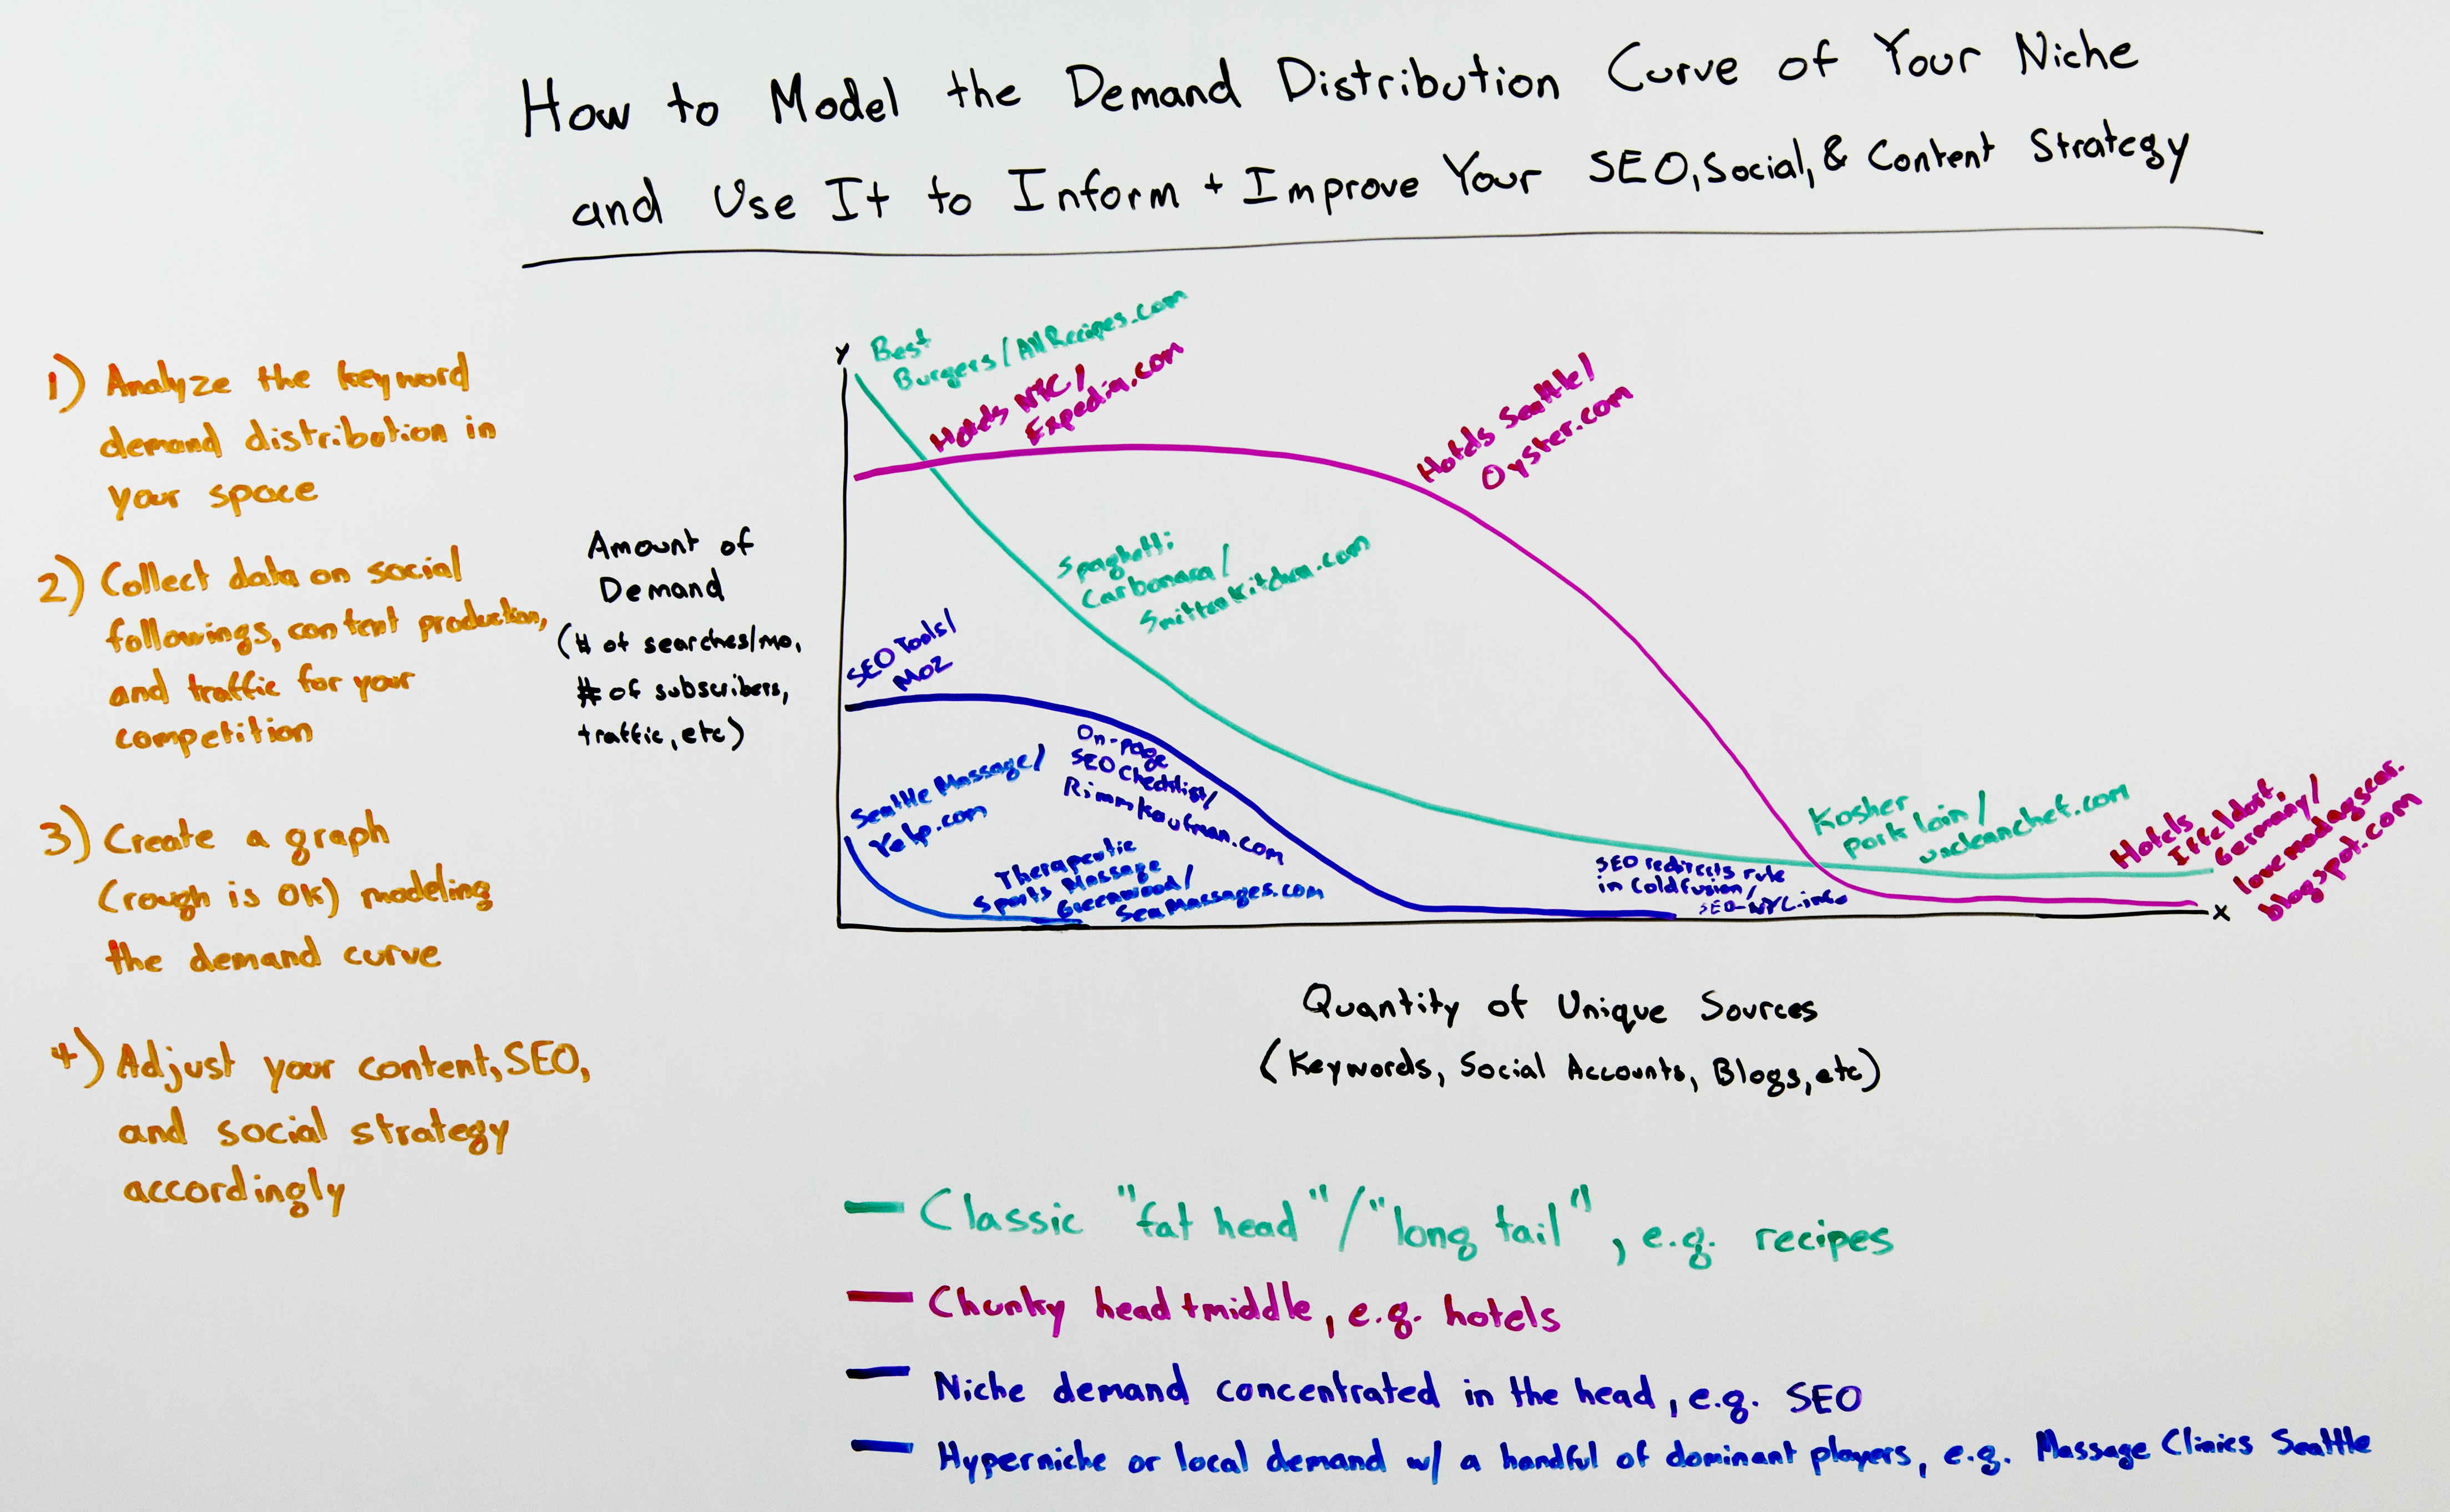 How to Model the Demand Distribution Curve of Your Niche
and Use It to Inform + Improve Your SEO, Social, & Content Strategy
1) Analyze the keyword
demand distribution in
your space
2) Collect data on social
followings, content production,
and traffic for your
competition
3) Create a graph
(rough is OK) modeling
the demand curve
4) Adjust your content, SEO,
and social strategy
accordingly
Amount of
Demand
(# of searches/mo,
# of subscribers,
traffic, etc)
Y
Best
Burgers/AllRecipes.com
Hotels NYC/
Expedia.com
Hotels Seattle/
Oyster.com
Spaghetti
Carbonara/
SmittenKitchen.com
SEO Tools/
Moz
On-page
SEO Checklist/
Rimmkaufman.com
Seattle Massage/
Yelp.com
Therapeutic
Sports Massage
Greenwood/
SeaMassages.com
SEO redirects rule
in Coldfusion/
SEO-NYC.info
Kosher
pork loin/
uncleanchef.com
Hotels
Germany/
blogspot.com
X
Quantity of Unique Sources
(Keywords, Social Accounts, Blogs, etc)
Classic "fat head"/"long tail", e.g. recipes
Chunky head + middle, e.g. hotels
Niche demand concentrated in the head, e.g. SEO
Hyperniche or local demand w/ a handful of dominant players, e.g. Massage Clinics Seattle